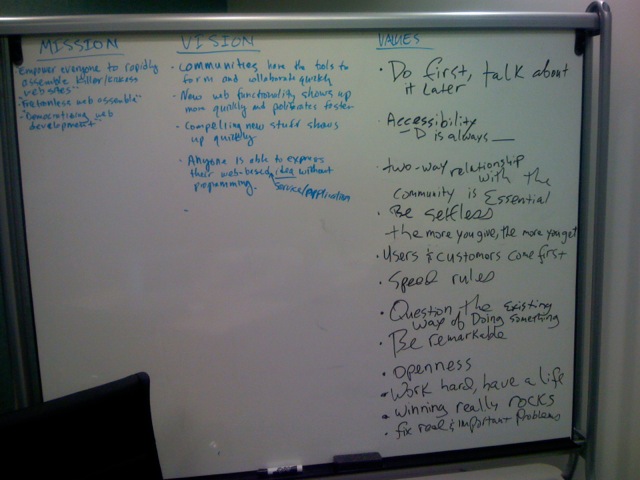 MISSION
"Empower everyone to rapidly
assemble killer/kickass
web sites"
"Frictionless web assemble"
"Democratizing web
development"
VISION
· Communities have the tools to
form and collaborate quickly
· New web functionality shows up
more quickly and proliferates faster
· Compelling new stuff shows
up quickly
· Anyone is able to express
their web-based idea without
programming. Service/Application
-
VALUES
· Do first, talk about
it later
· Accessibility
- D is always
· two-way relationship
with the
community is Essential
· Be selfless
the more you give, the more you get
· Users & customers come first
· Speed rules
· Question the existing
way of Doing something
· Be remarkable
· Openness
· Work hard, have a life
· winning really rocks
· fix real & important problems